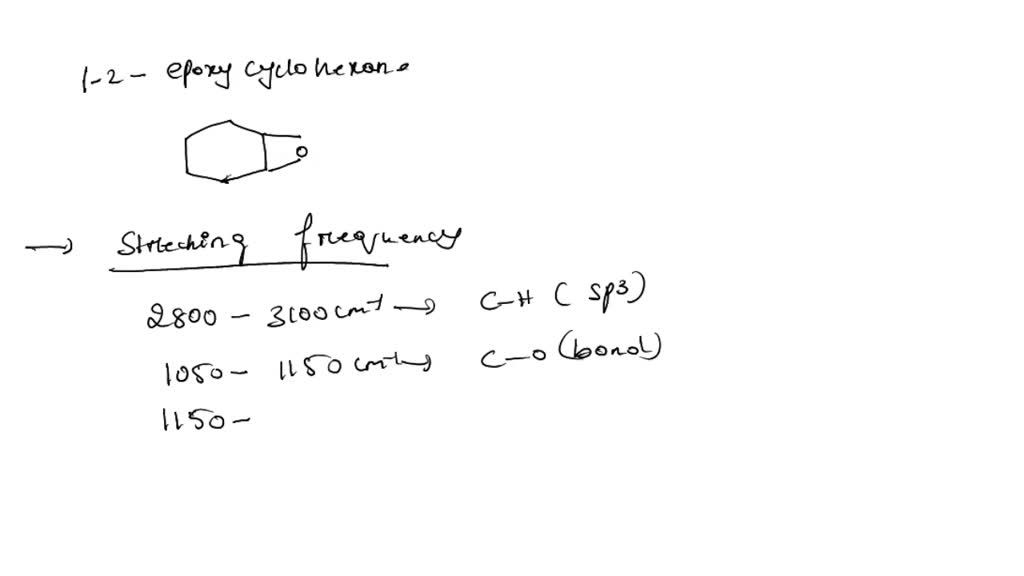 1-2 - epoxy cyclohexane
O
→ Streching frequency
2800 - 3100 cm⁻¹ → C-H ( sp3)
1050 - 1150 cm⁻¹ → C-O (bond)
1150 -